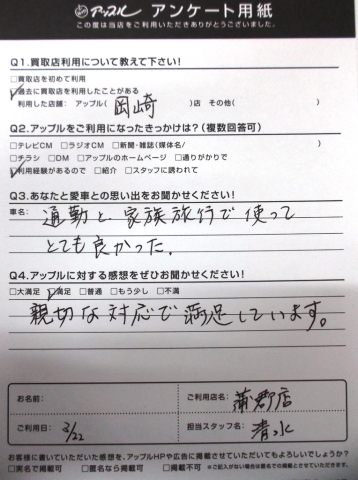 アップル アンケート用紙
この度は当店をご利用いただきありがとうございました。
Q1.買取店利用について教えて下さい!
□買取店を初めて利用
□過去に買取店を利用したことがある
利用した店舗: アップル( 岡崎 )店 その他( )
Q2.アップルをご利用になったきっかけは?(複数回答可)
□テレビCM □ラジオCM □新聞・雑誌(媒体名/ )
□チラシ □DM □アップルのホームページ □通りがかりで
□利用経験があるので □紹介 □スタッフに誘われて
Q3.あなたと愛車との思い出をお聞かせください!
車名: 通勤と、家族旅行で使って
とても良かった.
Q4.アップルに対する感想をぜひお聞かせください!
□大満足 □満足 □普通 □もう少し □不満
親切な対応で満足しています。
お名前:
ご利用店名: 蒲郡店
ご利用日: 3/22
担当スタッフ名: 清水
お客様に書いていただいた感想を、アップルHPや広告に掲載させていただいてもよろしいでしょうか?
□実名で掲載可 □匿名なら掲載可 □掲載不可 ※ご記入がない場合は匿名での掲載とさせていただきます。